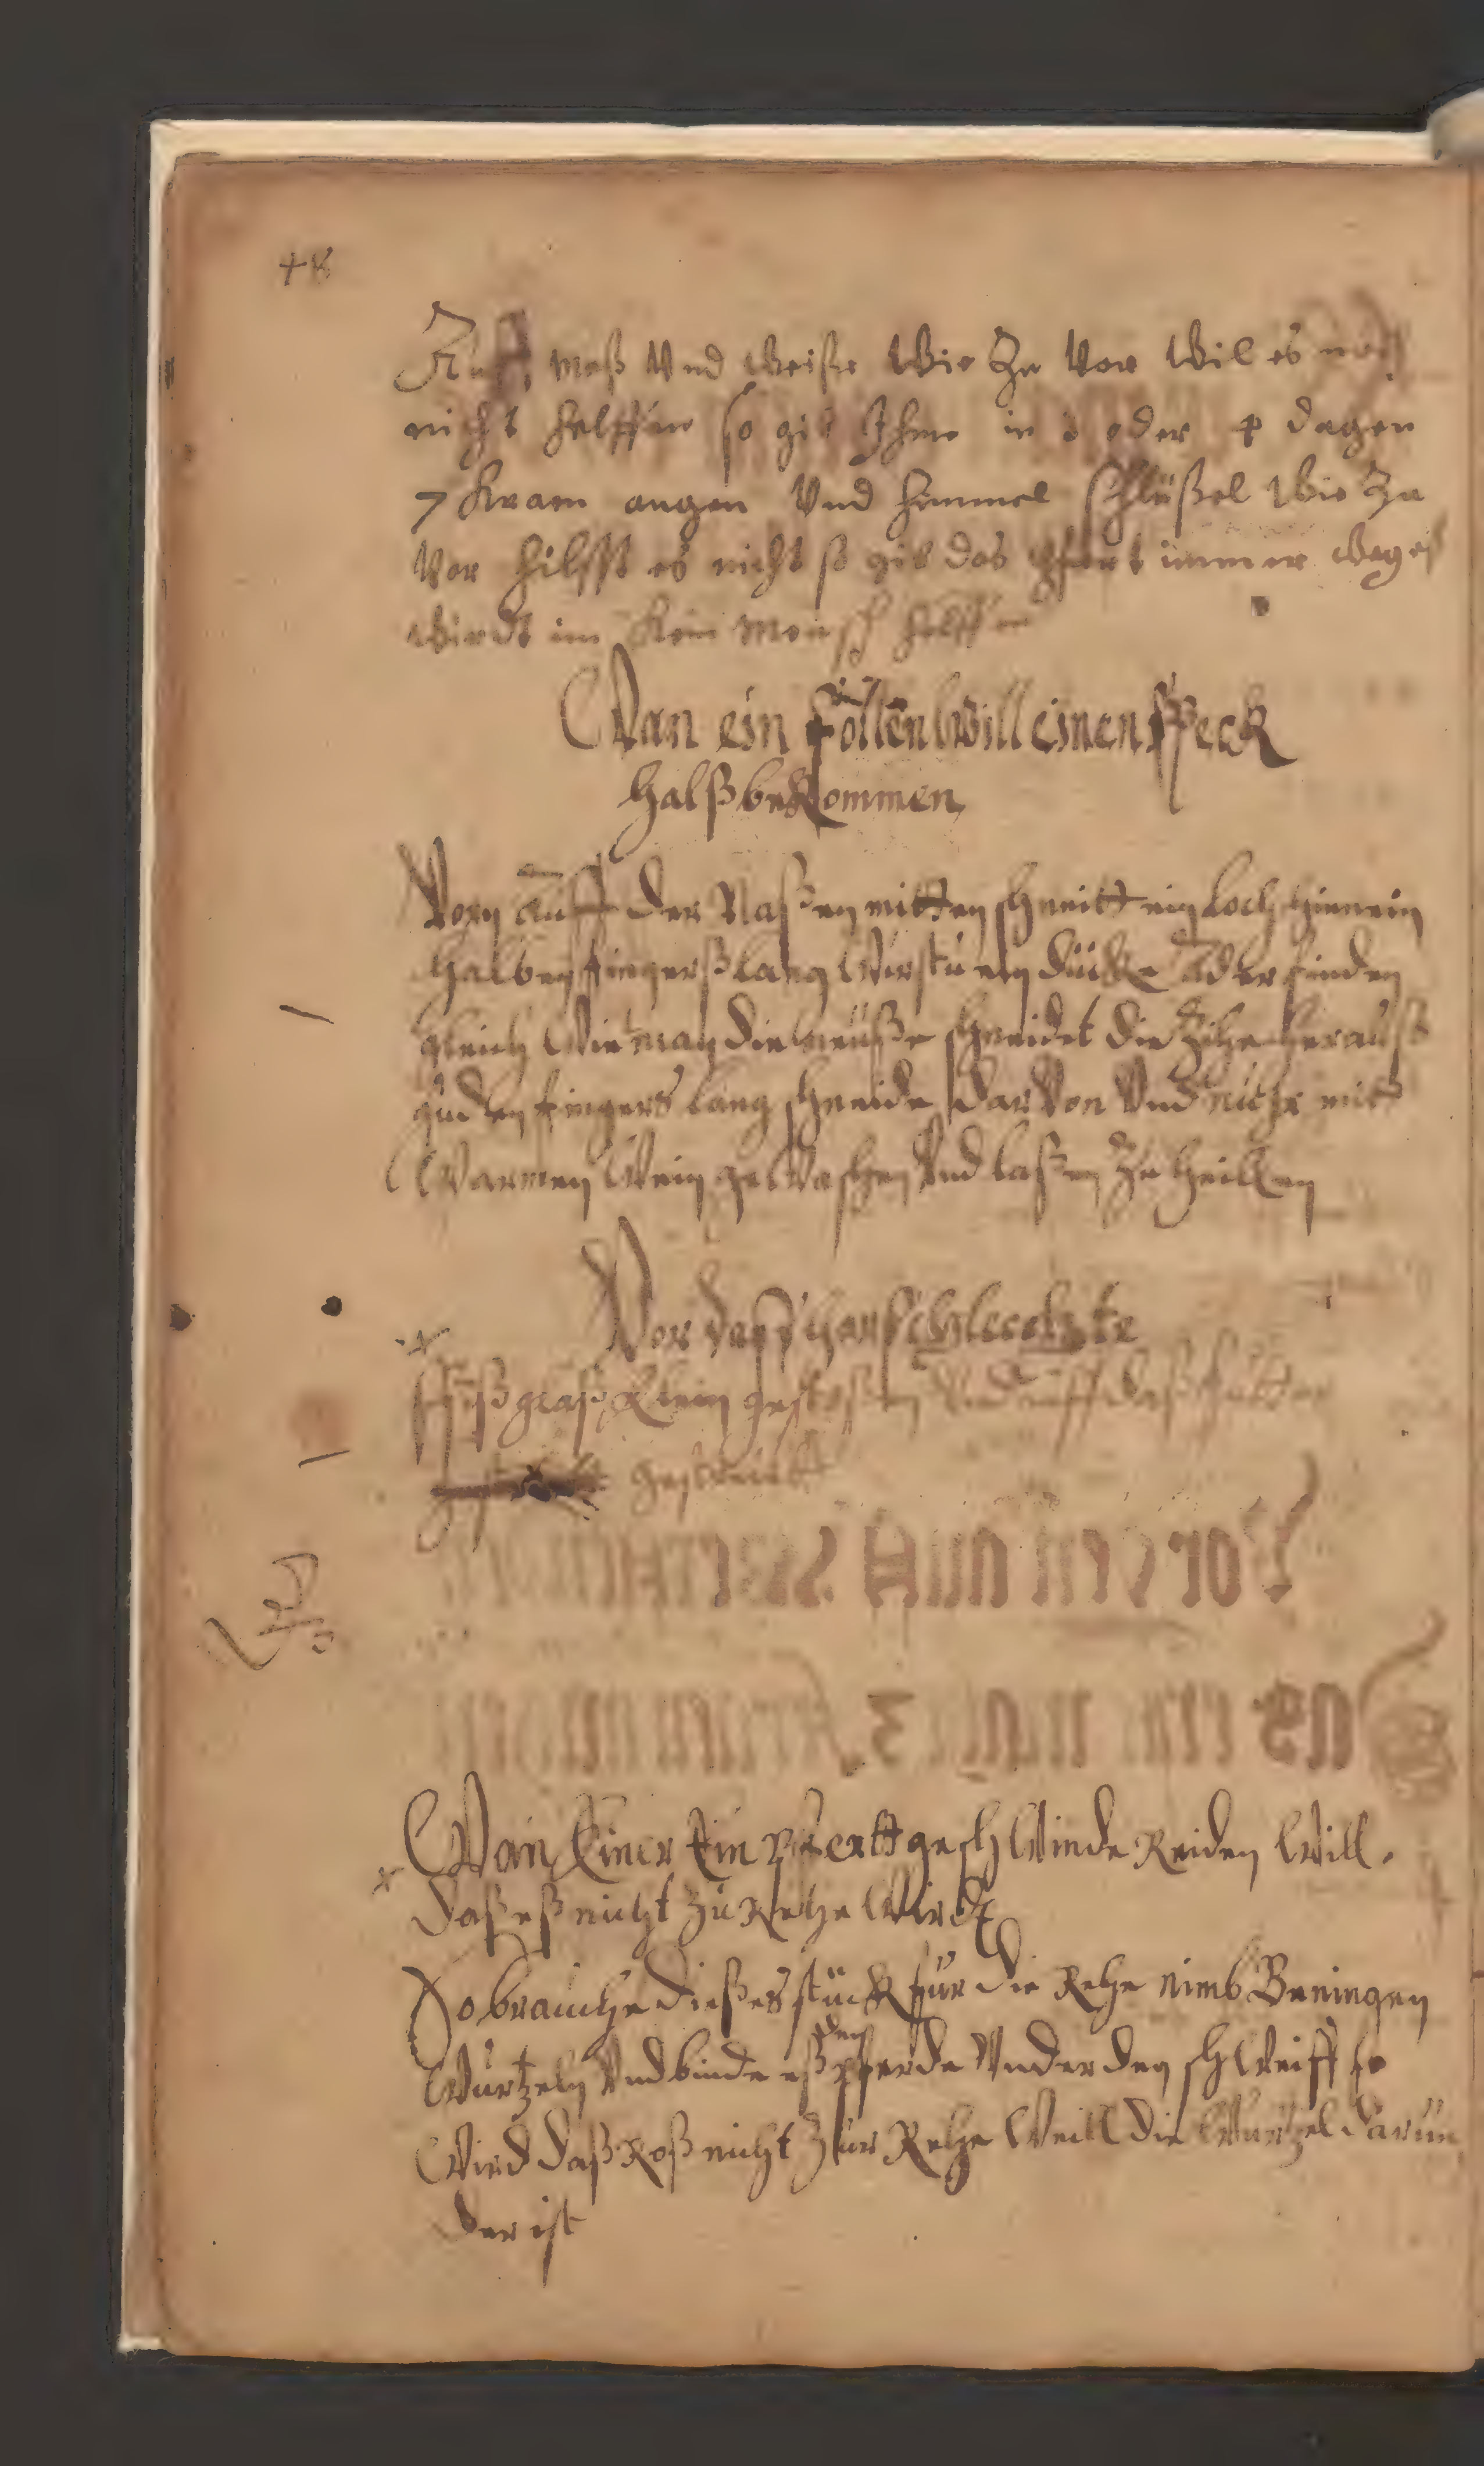 48
Auff maß Vnd weiße Wie Zu Vor Wil es noch
nicht helffen so gib Ihme in 3 oder 4 dagen
7 Kraen augen Vnd himmel schlüßel Wie Zu
Vor hilfft es nicht so gib das pfert immer weg es
wirdt im Kein Mensch helffen
Wan ein föllen will einen speck
halß beKommen
Vorn auff der Naßen mitten schneitt ein loch hienein
halben fingerß lang Wirstu ein dücke ader finden
gleich Wie man die meuße schneidet die Zihe herauß
guden fingers lang schneide darVon Vnd mit
Warmen Wein geWaschen Vnd laßen Zu heillen
Vor daß
glaß Klein gestoßen Vnd auff daß futter
gestreut
Wan Einer Ein pferrtt geschWinde Reiden Will.
Daß eß nicht Zu Rehe Wirdt
So brauche dießes stück für die Rehe nimb Beningen
Wurtzeln Vnd binde eß den pferde Vnder den schWeiff so
Wird daß Roß nicht Zur Rehe Weill die Wurtzel darun
der ist